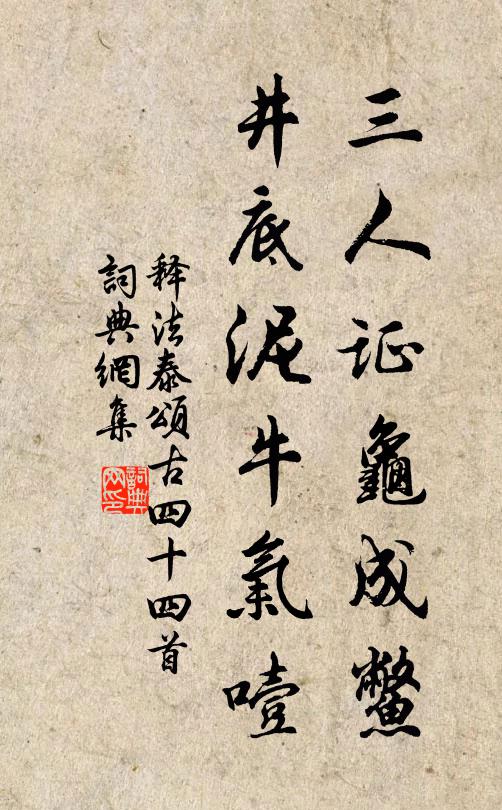 三人证龜成鱉
井底泥牛氣噎
释法泰頌古四十四首
詞典網集
詞典网印